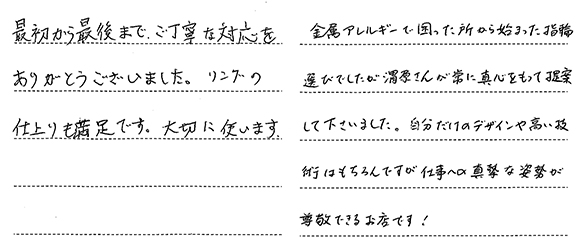 最初から最後まで、ご丁寧な対応を
ありがとうございました。リングの
仕上りも満足です。大切に使います
金属アレルギーで困った所から始まった指輪
選びでしたが渭原さんが常に真心をもって提案
して下さいました。自分だけのデザインや高い技
術はもちろんですが仕事への真摯な姿勢が
尊敬できるお店です！